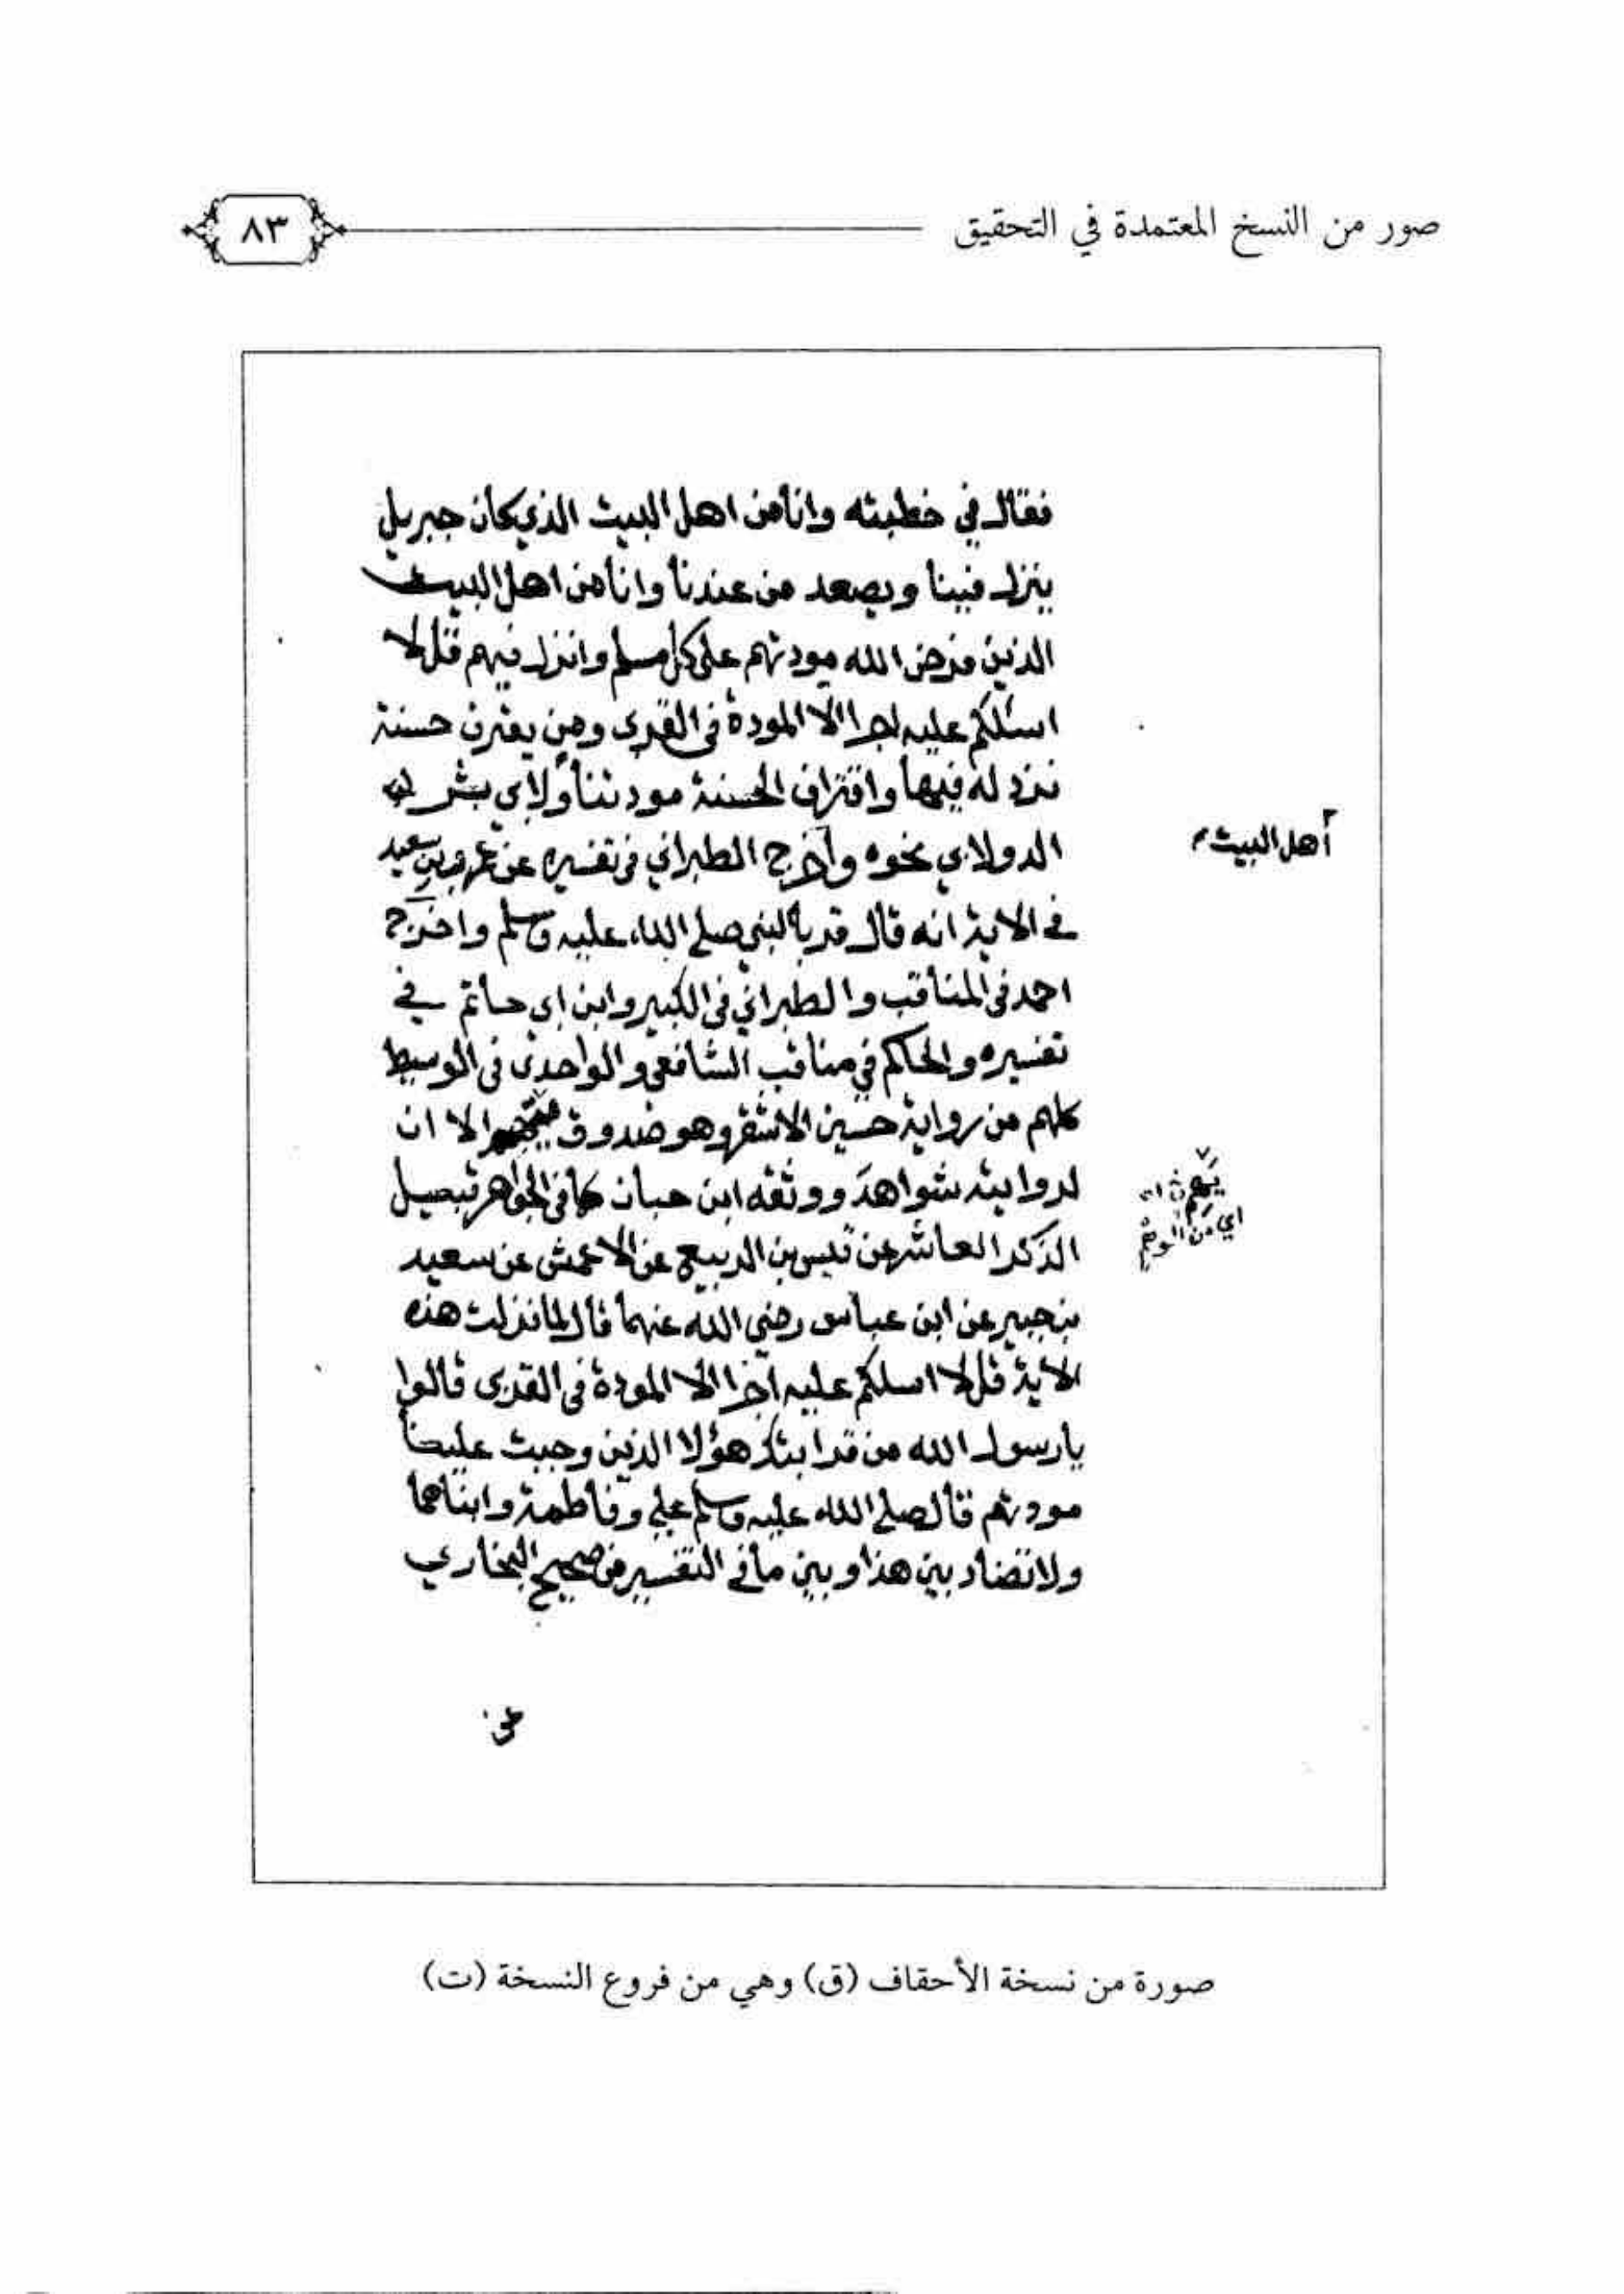 صور من النسخ المعتمدة في التحقيق
٨٣
فقال في خطبته وانا من اهل البيت الذي كان جبريل
ينزل فينا ويصعد من عندنا وانا من اهل البيت
الذين فرض الله مودتهم على كل مسلم وانزل فيهم قل لا
اسئلكم عليه اجرا الا المودة في القربى ومن يقترف حسنة
نزد له فيها واقتراف الحسنة مودتنا ولابي بشر
الدولابي نحوه واخرج الطبراني في تفسيره عن بن سعيد
أهل البيت
في الاية انه قال قربا النبي صلى الله عليه وسلم واخرج
احمد في المناقب والطبراني في الكبير وابن ابي حاتم في
تفسيره والحاكم في مناقب الشافعي والواحدي في الوسيط
كلهم من رواية حسين الاشقر وهو صدوق الا ان
لروايته شواهد ووثقه ابن حبان كما في الجواهر
يهم
اي من الوهم
الذكر العاشر عن قيس بن الربيع عن الاعمش عن سعيد
بن جبير عن ابن عباس رضي الله عنهما قال لما نزلت هذه
الاية قل لا اسلكم عليه اجرا الا المودة في القربى قالوا
يا رسول الله من قرابتك هؤلا الذين وجبت علينا
مودتهم قال صلى الله عليه وسلم علي وفاطمة وابناهما
ولا تضاد بين هذا وبين ما في التفسير من صحيح البخاري
صورة من نسخة الأحقاف (ق) وهي من فروع النسخة (ت)